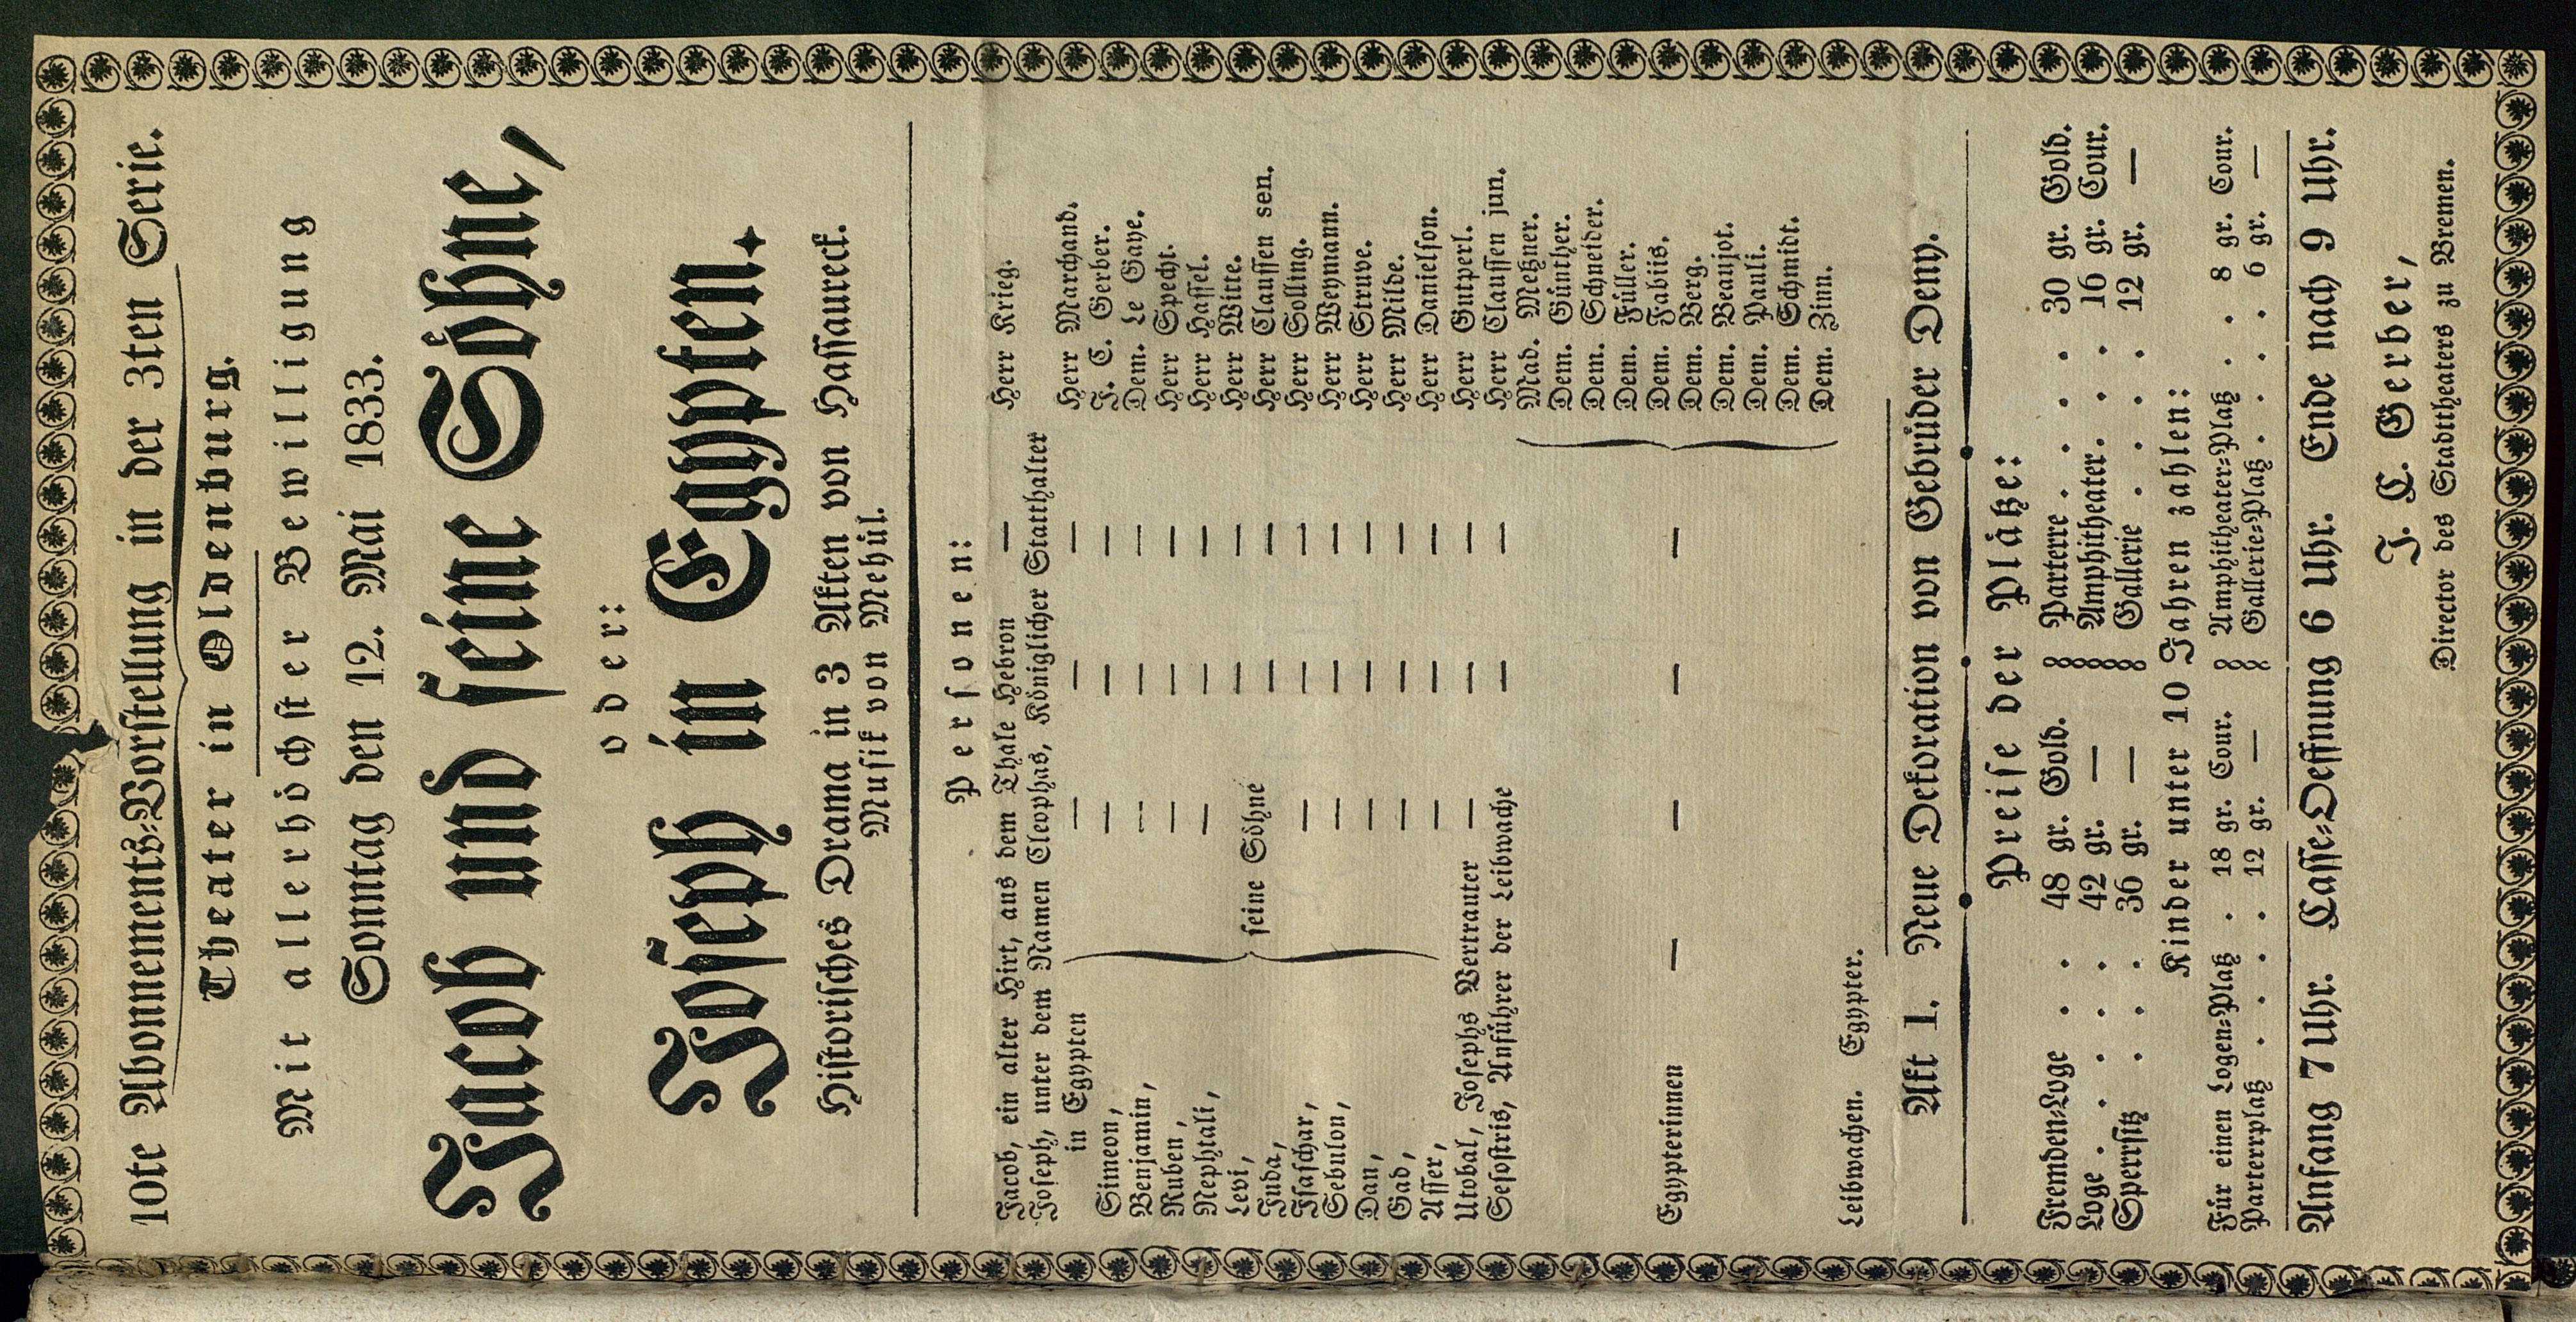 10te Abonnements-Vorstellung in der 3ten Serie.
Theater in Oldenburg.
Mit allerhöchster Bewilligung
Sonntag den 12. Mai 1833.
Jacob und seine Söhne,
oder:
Joseph in Egypten.
Historisches Drama in 3 Akten von Hassaureck.
Musik von Mehül.
Personen:
Jacob, ein alter Hirt, aus dem Thale Hebron — Herr Krieg.
Joseph, unter dem Namen Cleophas, Königlicher Statthalter
in Egypten — — — Herr Marchand.
Simeon, — — — J. C. Gerber.
Benjamin, — — — Dem. Le Gaye.
Ruben, — — — Herr Specht.
Nephtali, — — — Herr Hassel.
Levi, — — Herr Witte.
Juda, seine Söhne — — Herr Claussen sen.
Isaschar, — — — Herr Solling.
Sebulon, — — — Herr Weymann.
Dan, — — — Herr Struve.
Gad, — — — Herr Milde.
Asser, — — — Herr Danielson.
Utobal, Josephs Vertrauter — — — Herr Gutperl.
Sesostris, Anführer der Leibwache — — Herr Claussen jun.
Mad. Metzner.
Dem. Günther.
Dem. Schneider.
Dem. Füller.
Egypterinnen — — — — Dem. Fabiis.
Dem. Berg.
Dem. Beaujot.
Dem. Pauli.
Dem. Schmidt.
Dem. Zinn.
Leibwachen. Egypter.
Akt 1. Neue Dekoration von Gebrüder Deny.
Preise der Plätze:
Fremden-Loge . . 48 gr. Gold. Parterre . . . . 30 gr. Gold.
Loge . . . . 42 gr. — Amphitheater. . . . 16 gr. Cour.
Sperrsitz . . . 36 gr. — Gallerie . . . . 12 gr. —
Kinder unter 10 Jahren zahlen:
Für einen Logen-Platz . 18 gr. Cour. Amphitheater-Platz . . 8 gr. Cour.
Parterrplatz . . . . 12 gr. — Gallerie-Platz . . . . 6 gr. —
Anfang 7 Uhr. Casse-Oeffnung 6 Uhr. Ende nach 9 Uhr.
J. C. Gerber,
Director des Stadttheaters zu Bremen.